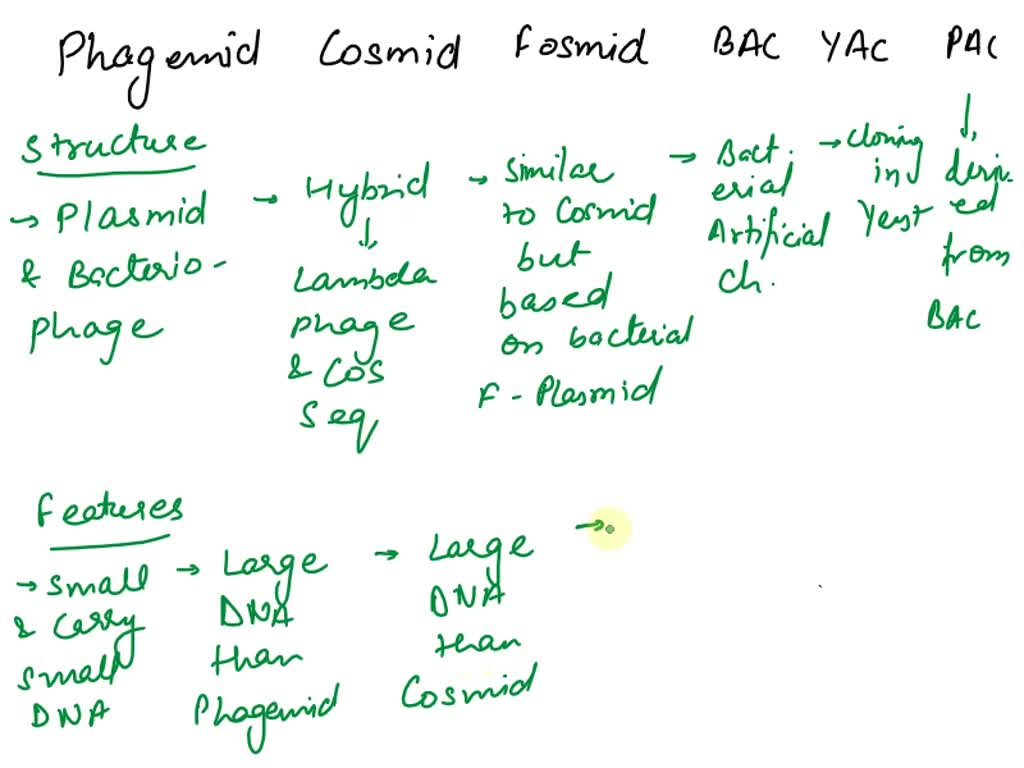 Phagemid Cosmid Fosmid BAC YAC PAC
Structure
→ Plasmid
& Bacterio -
phage
→ Hybrid
↓
Lambda
phage
& Cos
Seq
→ Similar
to Cosmid
but
based
on bacterial
F - Plasmid
→ Bact.
erial
Artificial
Ch.
→ Cloning
in
Yeast
↓
deriv.
ed
from
BAC
Features
→ Small
& Carry
Small
DNA
→ Large
DNA
than
Phagemid
→ Large
DNA
than
Cosmid
→